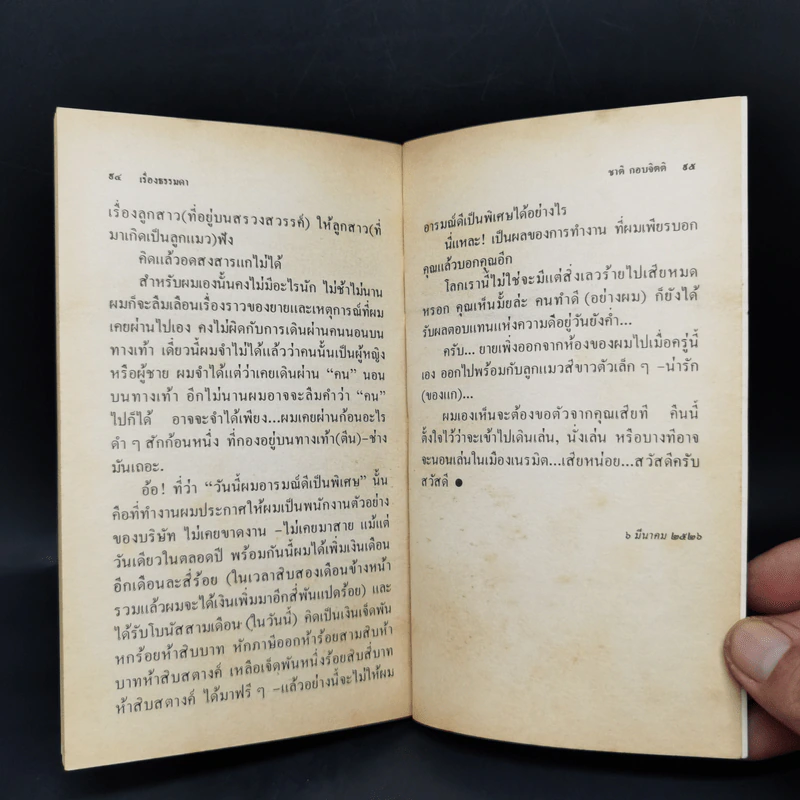 ๙๔ เรื่องธรรมดา
เรื่องลูกสาว(ที่อยู่บนสรวงสวรรค์) ให้ลูกสาว(ที่
มาเกิดเป็นลูกแมว)ฟัง
คิดแล้วอดสงสารแกไม่ได้
สำหรับผมเองนั้นคงไม่มีอะไรนัก ไม่ช้าไม่นาน
ผมก็จะลืมเลือนเรื่องราวของยายและเหตุการณ์ที่ผม
เคยผ่านไปเอง คงไม่ผิดกับการเดินผ่านคนนอนบน
ทางเท้า เดี๋ยวนี้ผมจำไม่ได้แล้วว่าคนนั้นเป็นผู้หญิง
หรือผู้ชาย ผมจำได้แต่ว่าเคยเดินผ่าน “คน” นอน
บนทางเท้า อีกไม่นานผมอาจจะลืมคำว่า “คน”
ไปก็ได้ อาจจะจำได้เพียง...ผมเคยผ่านก้อนอะไร
ดำ ๆ สักก้อนหนึ่ง ที่กองอยู่บนทางเท้า(ตีน)-ช่าง
มันเถอะ.
อ้อ! ที่ว่า “วันนี้ผมอารมณ์ดีเป็นพิเศษ” นั้น
คือที่ทำงานผมประกาศให้ผมเป็นพนักงานตัวอย่าง
ของบริษัท ไม่เคยขาดงาน -ไม่เคยมาสาย แม้แต่
วันเดียวในตลอดปี พร้อมกันนี้ผมได้เพิ่มเงินเดือน
อีกเดือนละสี่ร้อย (ในเวลาสิบสองเดือนข้างหน้า
รวมแล้วผมจะได้เงินเพิ่มมาอีกสี่พันแปดร้อย) และ
ได้รับโบนัสสามเดือน (ในวันนี้) คิดเป็นเงินเจ็ดพัน
หกร้อยห้าสิบบาท หักภาษีออกห้าร้อยสามสิบห้า
บาทห้าสิบสตางค์ เหลือเจ็ดพันหนึ่งร้อยสิบสี่บาท
ห้าสิบสตางค์ ได้มาฟรี ๆ -แล้วอย่างนี้จะไม่ให้ผม
ชาติ กอบจิตติ ๙๕
อารมณ์ดีเป็นพิเศษได้อย่างไร
นี่แหละ! เป็นผลของการทำงาน ที่ผมเพียรบอก
คุณแล้วบอกคุณอีก
โลกเรานี้ไม่ใช่จะมีแต่สิ่งเลวร้ายไปเสียหมด
หรอก คุณเห็นมั้ยล่ะ คนทำดี (อย่างผม) ก็ยังได้
รับผลตอบแทนแห่งความดีอยู่วันยังค่ำ...
ครับ... ยายเพิ่งออกจากห้องของผมไปเมื่อครู่นี้
เอง ออกไปพร้อมกับลูกแมวสีขาวตัวเล็ก ๆ -น่ารัก
(ของแก)...
ผมเองเห็นจะต้องขอตัวจากคุณเสียที คืนนี้
ตั้งใจไว้ว่าจะเข้าไปเดินเล่น, นั่งเล่น หรือบางทีอาจ
จะนอนเล่นในเมืองเนรมิต...เสียหน่อย...สวัสดีครับ
สวัสดี ●
๖ มีนาคม ๒๕๒๖